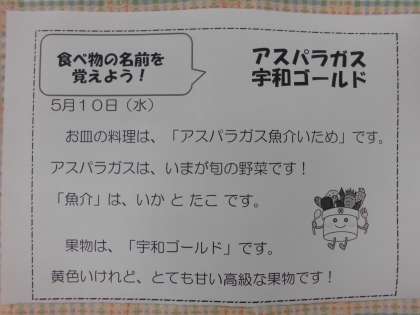 食べ物の名前を
覚えよう！
アスパラガス
宇和ゴールド
５月１０日（水）
お皿の料理は、「アスパラガス魚介いため」です。
アスパラガスは、いまが旬の野菜です！
「魚介」は、いか と たこ です。
果物は、「宇和ゴールド」です。
黄色いけれど、とても甘い高級な果物です！